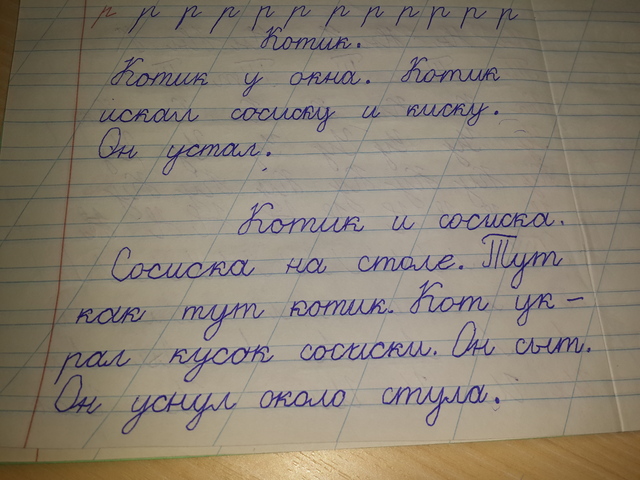 р р р р р р р р р р р р
Котик.
Котик у окна. Котик
искал сосиску и киску.
Он устал.
Котик и сосиска.
Сосиска на столе. Тут
как тут котик. Кот ук-
рал кусок сосиски. Он сыт.
Он уснул около стула.